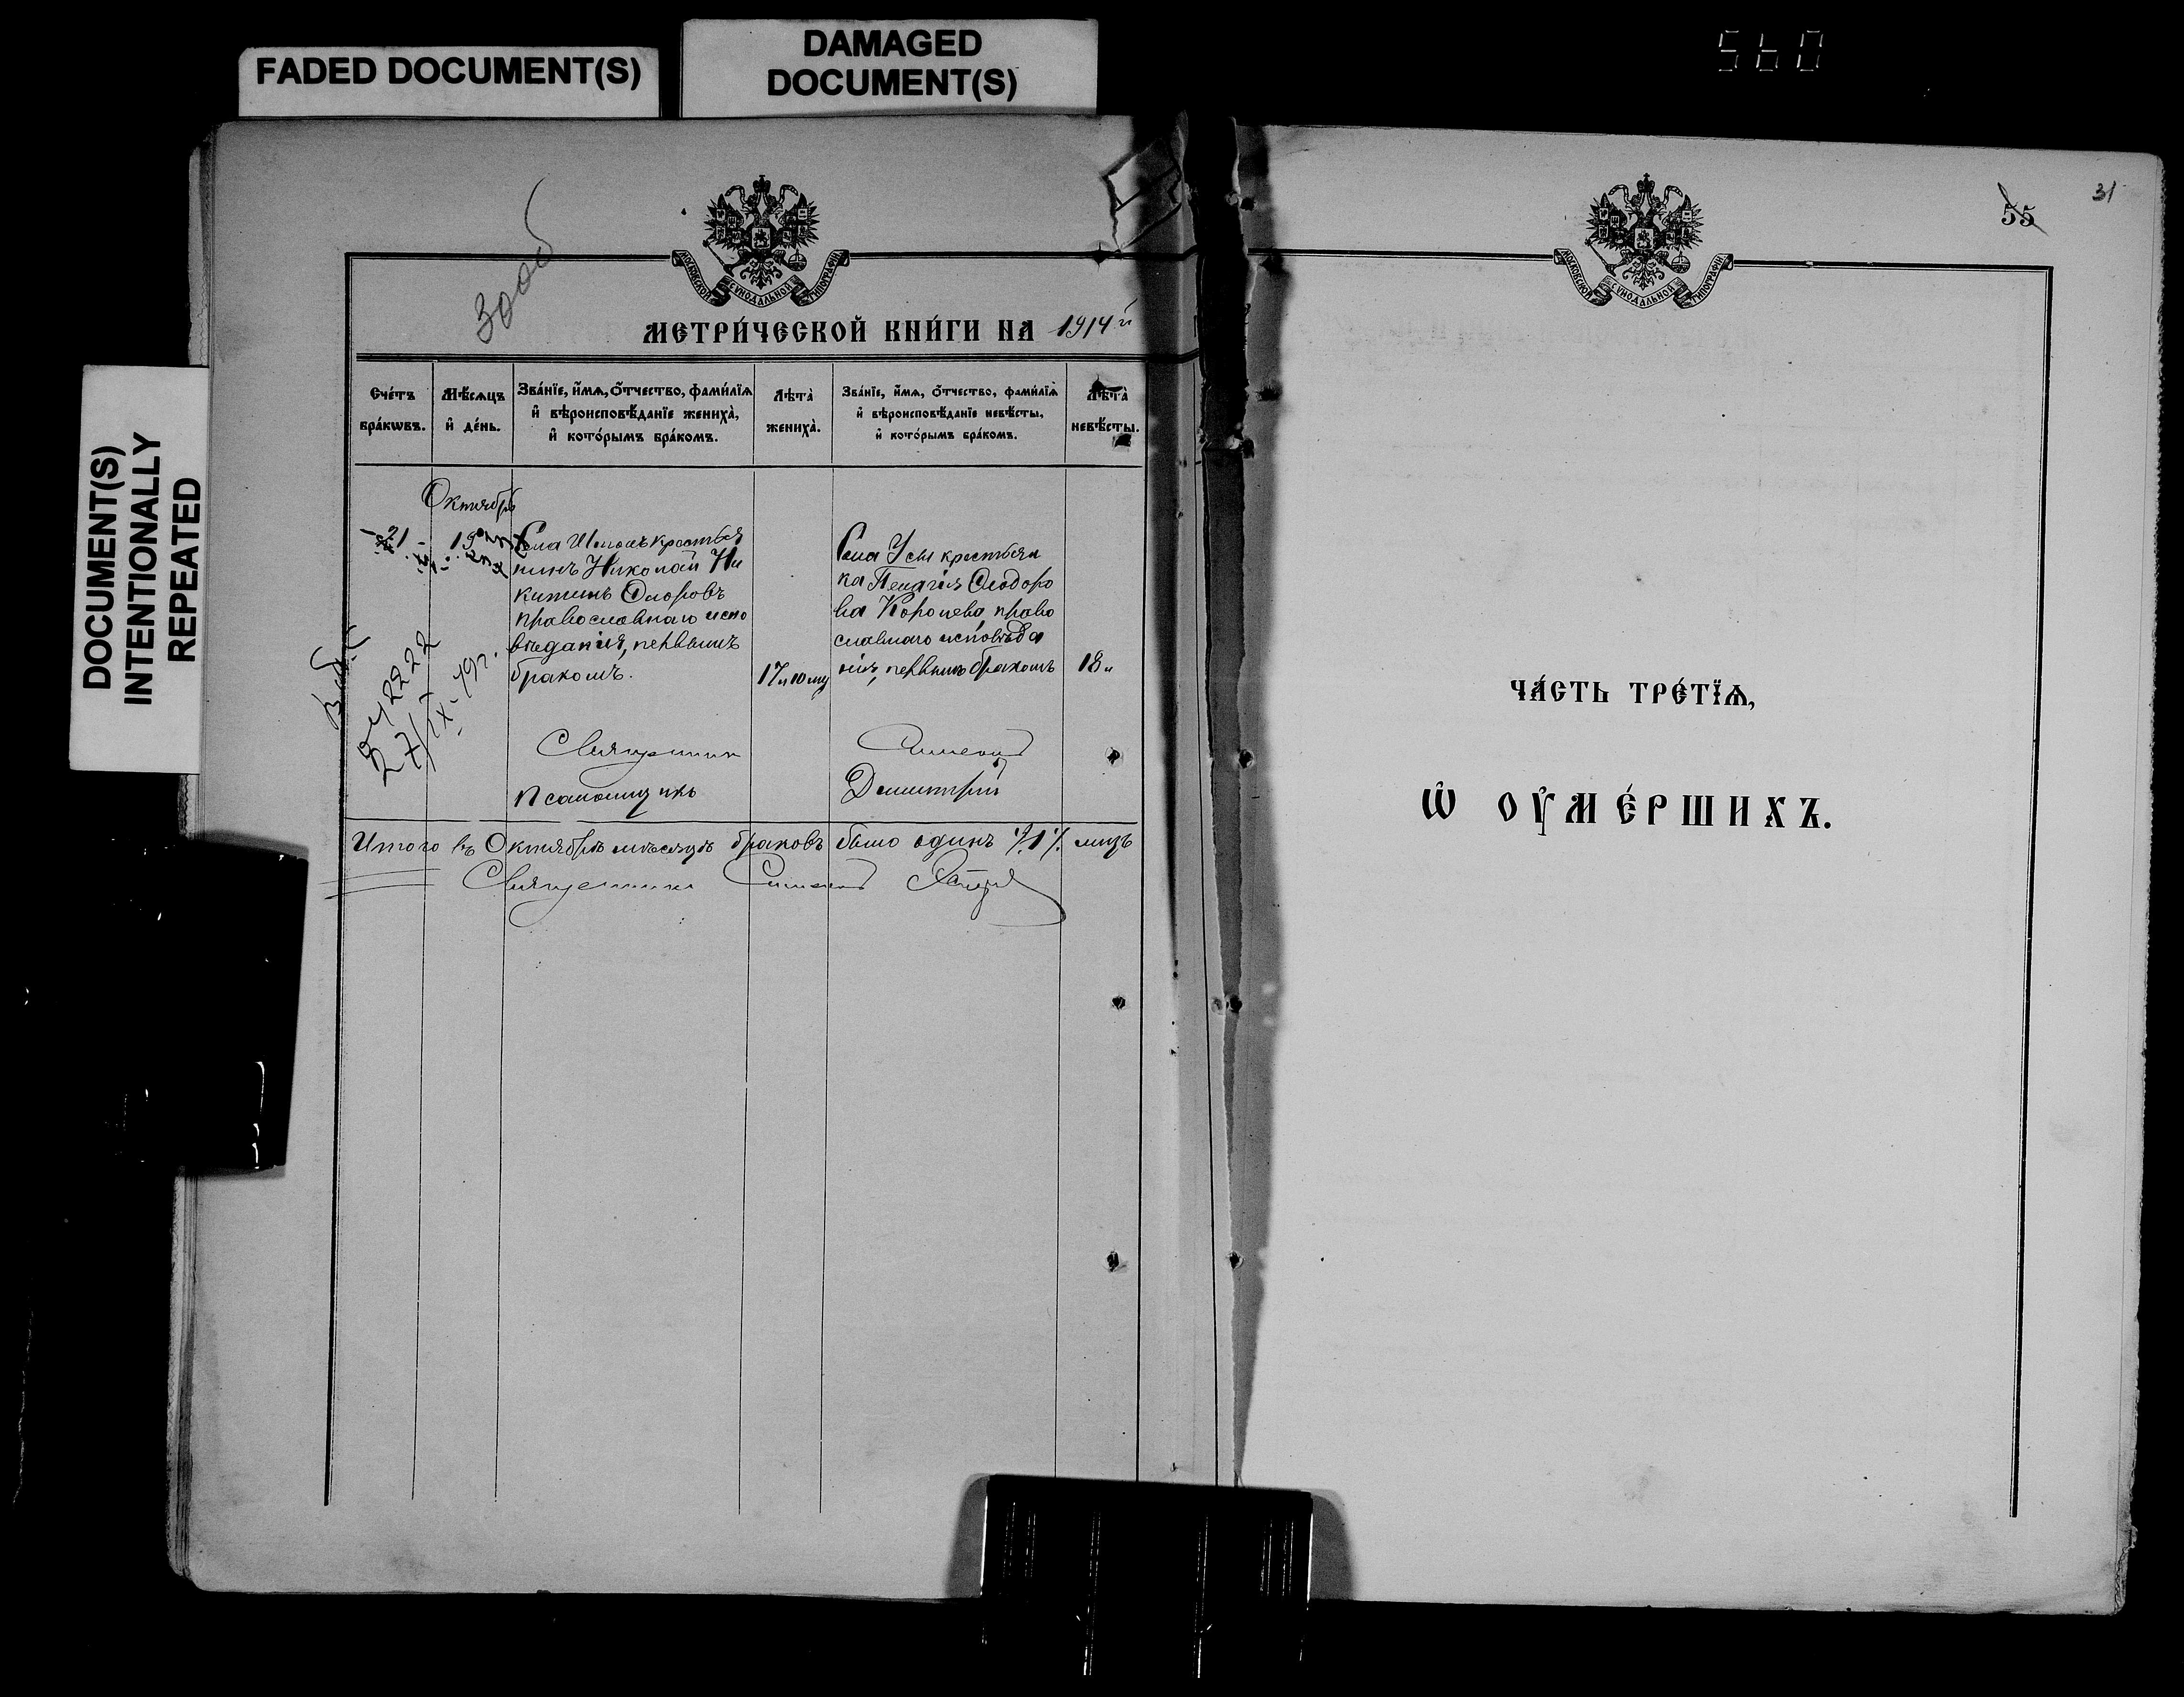 FADED DOCUMENT(S)
DAMAGED
DOCUMENT(S)
560
DOCUMENT(S)
INTENTIONALLY
REPEATED
МОСКОВСКОЙ СѴНОДАЛЬНОЙ ТИПОГРАФІИ
МЕТРИ́ЧЕСКОЙ КНИ́ГИ НА 1914й
Сче́тъ
бра́кѡвъ.
Мѣ́сѧцъ
и҆ де́нь.
Зва́нїе, и҆́мѧ, ѻ҆́тчество, фами́лїѧ
и҆ вѣроисповѣ́данїе жениха̀,
и҆ кото́рымъ бра́комъ.
Лѣта̀
жениха̀.
Зва́нїе, и҆́мѧ, ѻ҆́тчество, фами́лїѧ
и҆ вѣроисповѣ́данїе невѣ́сты,
и҆ кото́рымъ бра́комъ.
Лѣта̀
невѣ́сты.
Октябрь
21
19
Села крестья
нинъ Николай Ни
китинъ
православнаго испо
вѣданія, первымъ
бракомъ.
17
Села Усы крестьян
ка Пелагія Ѳеодоро
ва православнаго исповѣда
нія, первымъ бракомъ
18
2222
27/IX-49г.
Священникъ Симеонъ
Псаломщикъ Димитрій
Итого въ Октябрѣ мѣсяцѣ браковъ было одинъ 1
Священникъ Симеонъ
55
31
МОСКОВСКОЙ СѴНОДАЛЬНОЙ ТИПОГРАФІИ
ЧА́СТЬ ТРЕ́ТЇѦ,
Ѡ҆ ОУ҆МЕ́РШИХЪ.